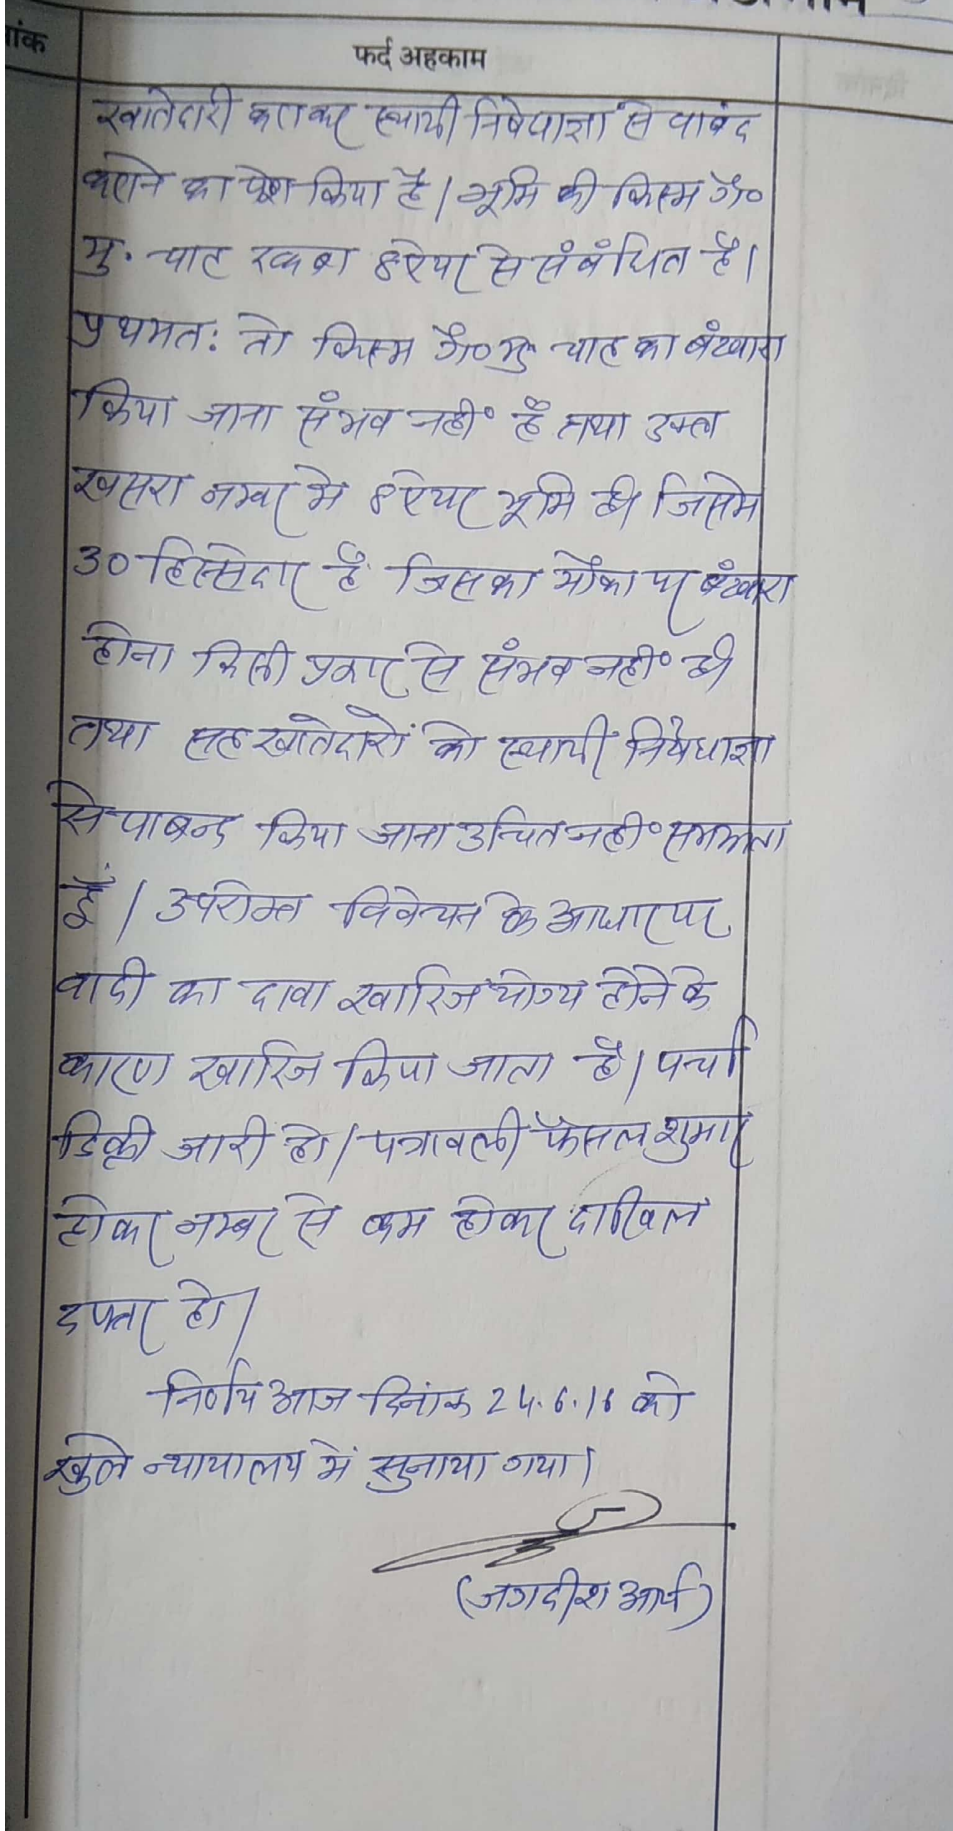 फर्द अहकाम
खातेदारी करा कर स्थायी निषेधाज्ञा से पाबंद
कराने का पेश किया है। भूमि की किस्म गै०
मु. चाह रकबा 8 ऐयर से संबंधित है।
प्रथमतः तो किस्म गै० मु० चाह का बंटवारा
किया जाना संभव नहीं है तथा उक्त
खसरा नम्बर मे 8 ऐयर भूमि ही जिसमे
30 हिस्सेदार है जिसका मौका पर बंटवारा
होना किसी प्रकार से संभव नहीं ही
तथा सह खातेदारों को स्थायी निषेधाज्ञा
से पाबन्द किया जाना उचित नही समझता
हूँ। उपरोक्त विवेचन के आधार पर
वादी का दावा खारिज योग्य होने के
कारण खारिज किया जाता है। पर्चा
डिक्री जारी हो। पत्रावली फैसल शुमार
होकर नम्बर से कम होकर दाखिल
दफ्तर हो।
निर्णय आज दिनांक 24.6.16 को
खुले न्यायालय में सुनाया गया।
(जगदीश आर्य)